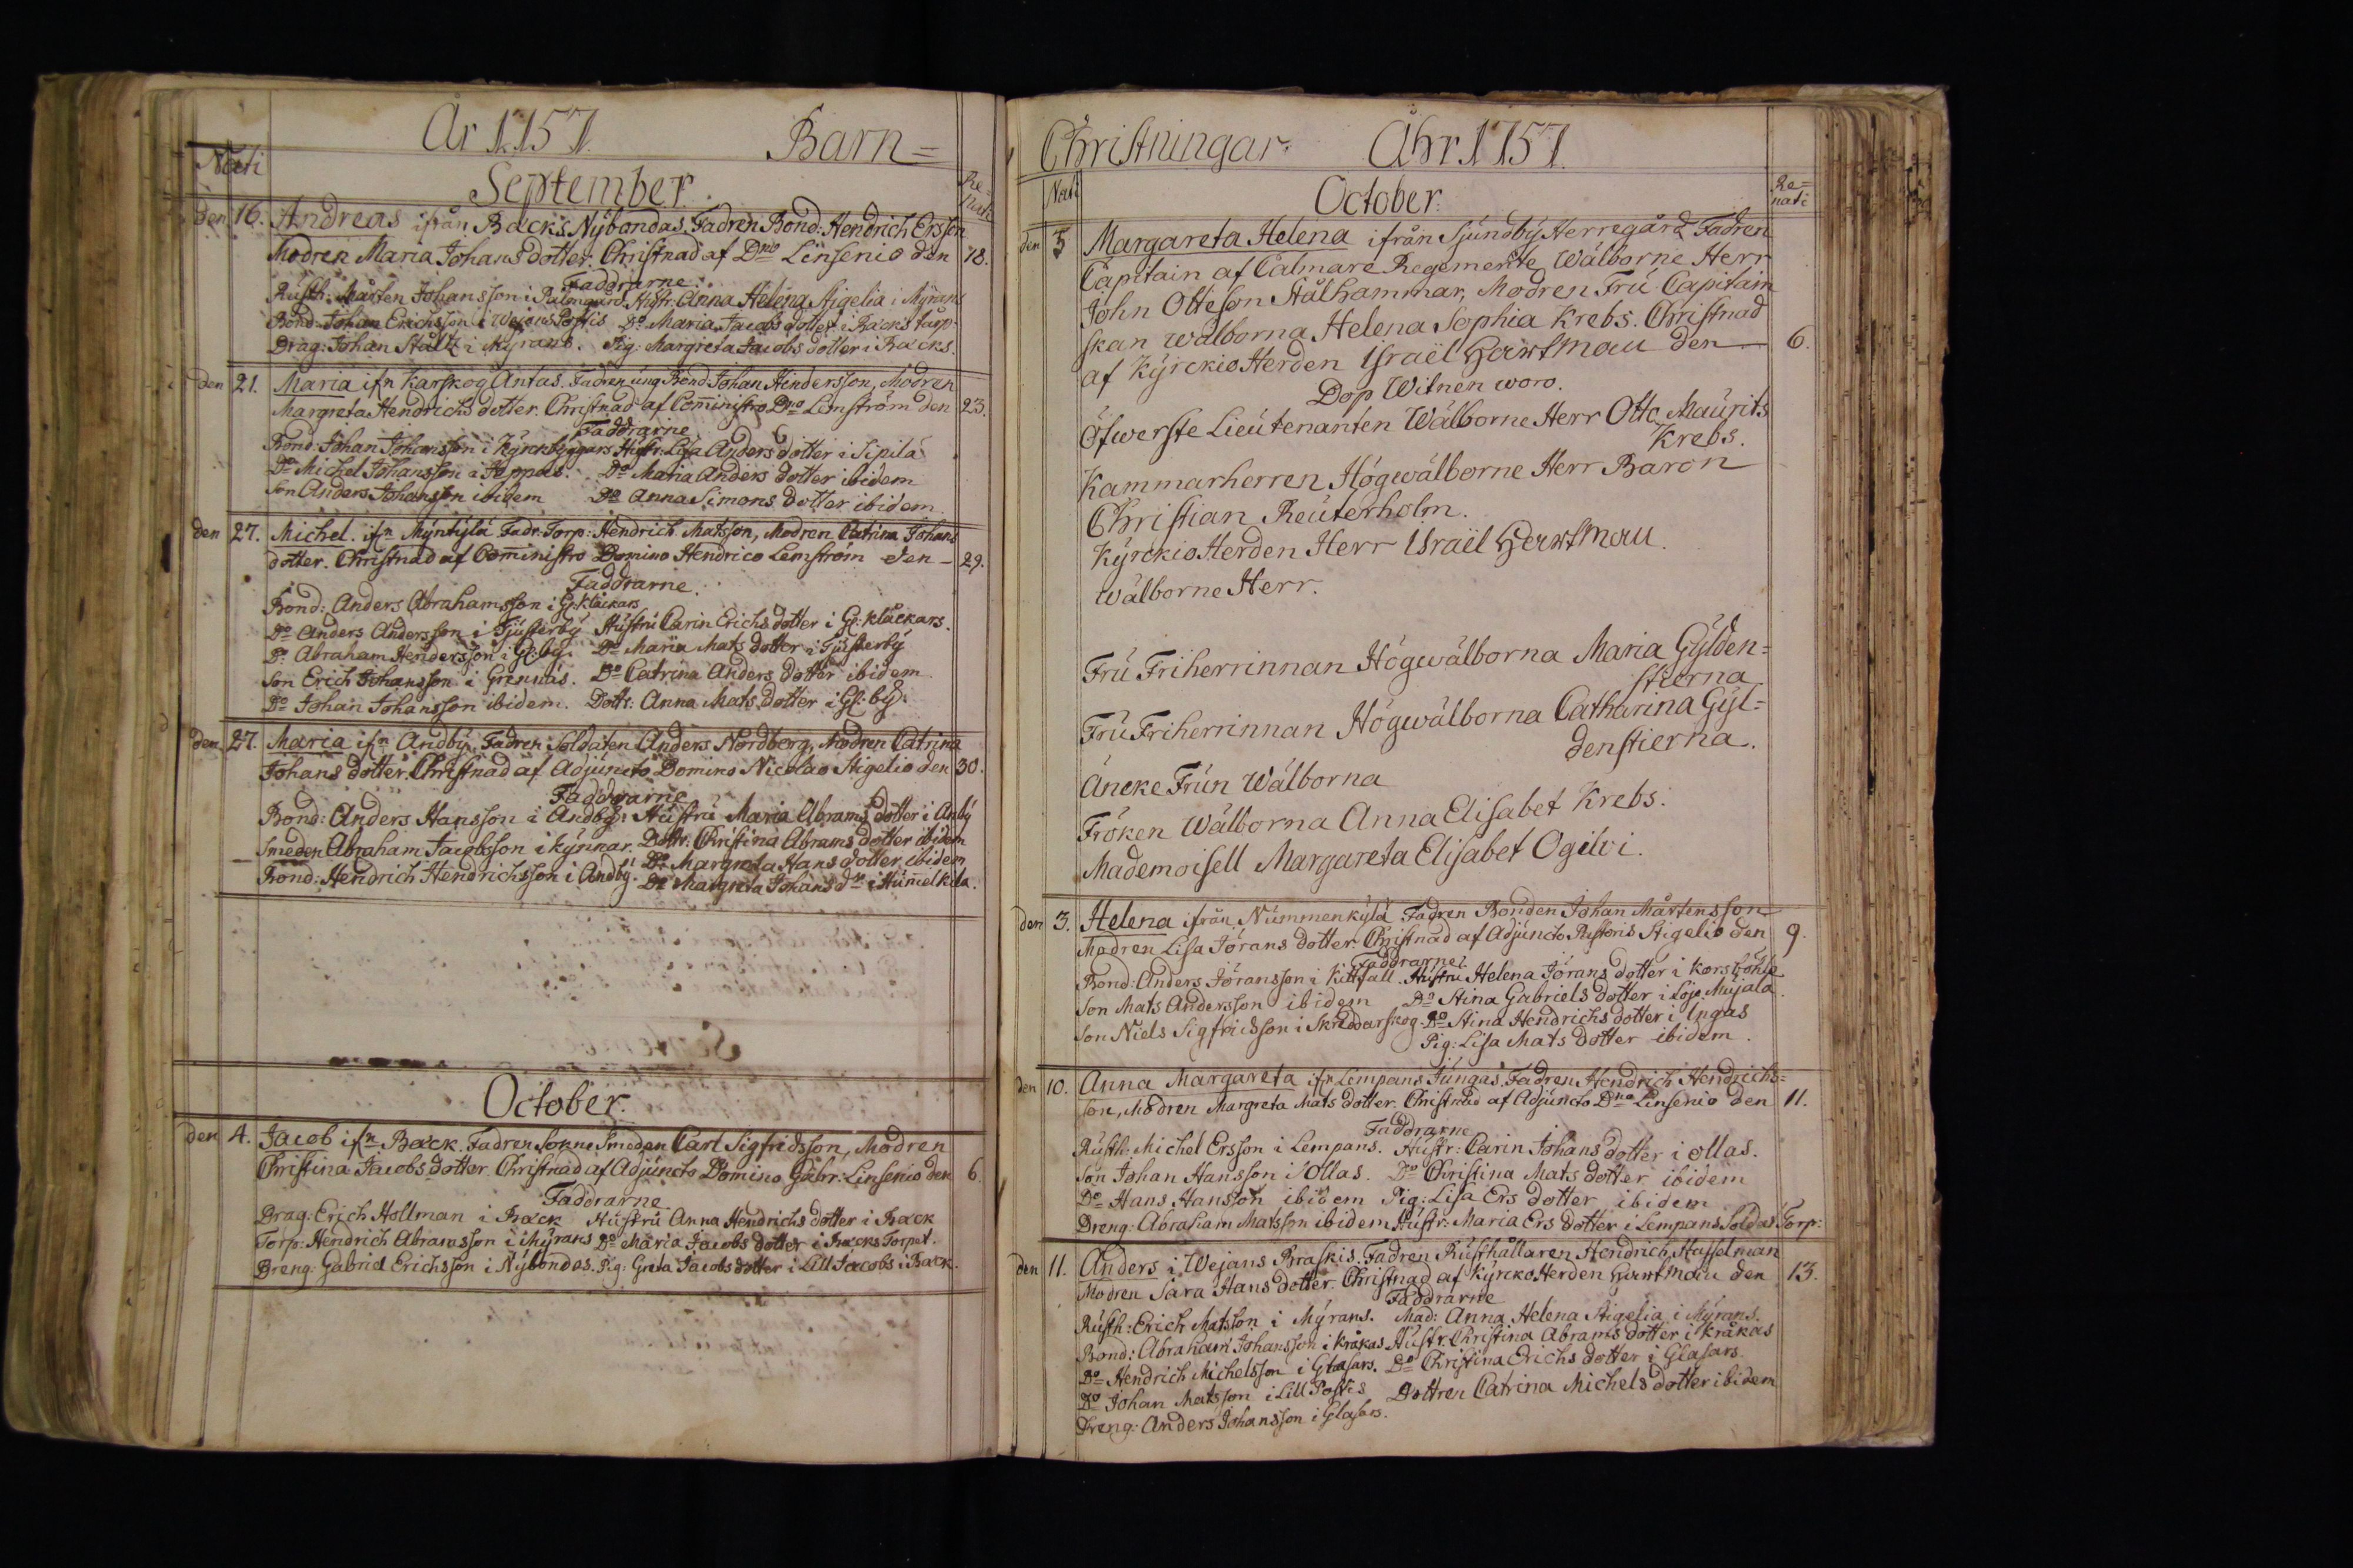 År 1757. Barn=
Nati
September.
Re=
nati
den 16. Andreas ifrån Bäcks Nybondas. Fadren Bond: Hendrich Ersson
Modren Maria Johans dotter. Christnad af Dno Linsenio den 18.
Faddrarne.
Rusth: Mårten Johansson i Palmgård Hustr: Anna Helena Stigelia i Myrans
Bond: Johan Erichsson i Wejans Postis Do Maria Jacobs dotter i Bäcks torp.
Drag: Johan Stålt i Myrans. Pig: Margreta Jacobs dotter i Bäcks.
den 21. Maria ifn Karskog Antas. Fadren ung Bond Johan Hindersson, Modren
Margreta Hendrichs dotter. Christnad af Comministro Dno Lemström den 23.
Faddrarne
Bond: Johan Johansson i Kyrckbyggars Hustr: Lisa Anders dotter i Sipilä
Do Michel Johansson i Heppas. Do Maria Anders dotter ibidem
Son Anders Johansson ibidem Do Anna Simons dotter ibidem.
den 27. Michel. ifn Myntylä Fadr: Torp: Hendrich Matsson, Modren Catrina Johans
dotter. Christnad af Comministro Domino Hendrico Lemström den – 29.
Faddrarne.
Bond: Anders Abrahamsson i Gr: Kläckars
Do Anders Andersson i Tjusterby Hustru Carin Erichs dotter i Gr: kläckars.
Do Abraham Hendersson i Gl: by. Do Maria Mats dotter i Tjusterby
Son Erich Johansson i Grennäs. Do Catrina Anders dotter ibidem
Do Johan Johansson ibidem. Dottr: Anna Mats dotter i Gl: by.
den 27. Maria ifn Andby, Fadren Soldaten Anders Nordberg, Modren Catrina
Johans dotter. Christnad af Adjuncto Domino Nicolao Stigelio den 30.
Faddrarne
Bond: Anders Hansson i Andby: Hustru Maria Abrams dotter i Anby
Smeden Abraham Jacobsson i kynnar. Dottr: Christina Abrams dotter ibidem
Bond: Hendrich Hendrichsson i Andby. Do Margreta Hans dotter ibidem
Do Margreta Johans dr i Hummelkila.
October.
den 4. Jacob ifn Bäck. Fadren Sokne Smeden Carl Sigfridsson, Modren
Christina Jacobs dotter. Christnad af Adjuncto Domino Gabr: Linsenio den 6.
Faddrarne
Drag: Erich Hollman i Bäck Hustru Anna Hendrichs dotter i Bäck
Torp: Hendrich Abramsson i Myrans Do Maria Jacobs dotter i Bäcks Torpet.
Dreng: Gabriel Erichsson i Nybondas. Pig: Greta Jacobs dotter i Lill Jacobs i Bäck.
Christningar. Åhr 1757.
Nati
October.
Re=
nati
den 3 Margareta Helena ifrån Sjundby Herregård Fadren
Capitain af Calmare Regemente Wälborne Herr
John Otteson Stålhammar, Modren Fru Capitain
skan Wälborna Helena Sophia Krebs. Christnad
af KyrckioHerden Israël Hartman den – 6.
Dop Witnen woro.
Öfwerste Lieutenanten Wälborne Herr Otto Maurits
Krebs.
Kammarherren Högwälborne Herr Baron
Christian Reuterholm.
KyrckioHerden Herr Israël Hartman.
Wälborne Herr.
Fru Friherrinnan Högwälborna Maria Gylden=
stierna
Fru Friherrinnan Högwälborna Catharina Gyl=
denstierna.
Äncke Frun Wälborna
Fröken Wälborna Anna Elisabet Krebs.
Mademoisell Margareta Elisabet Ogilvi.
den 3. Helena ifrån Nummenkylä Fadren Bonden Johan Mårtensson
Modren Lisa Jörans dotter. Christnad af Adjuncto Pastoris Stigelio den 9.
Faddrarne.
Bond: Anders Jöransson i Kittfall. Hustru Helena Jörans dotter i Korsböhle
Son Mats Andersson ibidem Do Stina Gabriels dotter i Lojo Mujala.
Son Niels Sigfridsson i Skräddarskog. Do Stina Hendrichs dotter i Ingas
Pig: Lisa Mats dotter ibidem.
den 10. Anna Margareta ifn Lempans Jungas. Fadren Hendrich Hendrichs=
son, Modren Margreta Mats dotter. Christnad af Adjuncto Dno Linsenio den 11.
Faddrarne
Rusth: Michel Ersson i Lempans. Hustr: Carin Johans dotter i Ollas.
Son Johan Hansson i Ollas. Do Christina Mats dotter ibidem
Do Hans Hansson ibidem Pig: Lisa Ers dotter ibidem
Dreng: Abraham Matsson ibidem Hustr: Maria Ers dotter i Lempans Soldas Torp:
den 11. Anders i Wejans Praskis. Fadren Rusthållaren Hendrich Hasselman
Modren Sara Hans dotter. Christnad af KyrckoHerden Hartman den 13.
Faddrarne
Rusth: Erich Matsson i Myrans. Mad: Anna Helena Stigelia i Myrans.
Bond: Abraham Johansson i kråkas Hustr: Christina Abrams dotter i kråkas
Do Hendrich Michelsson i Glasars. Do Christina Erichs dotter i Glasars.
Do Johan Matsson i Lill Postis Dottren Catrina Michels dotter ibidem
Dreng: Anders Johansson i Glasars.